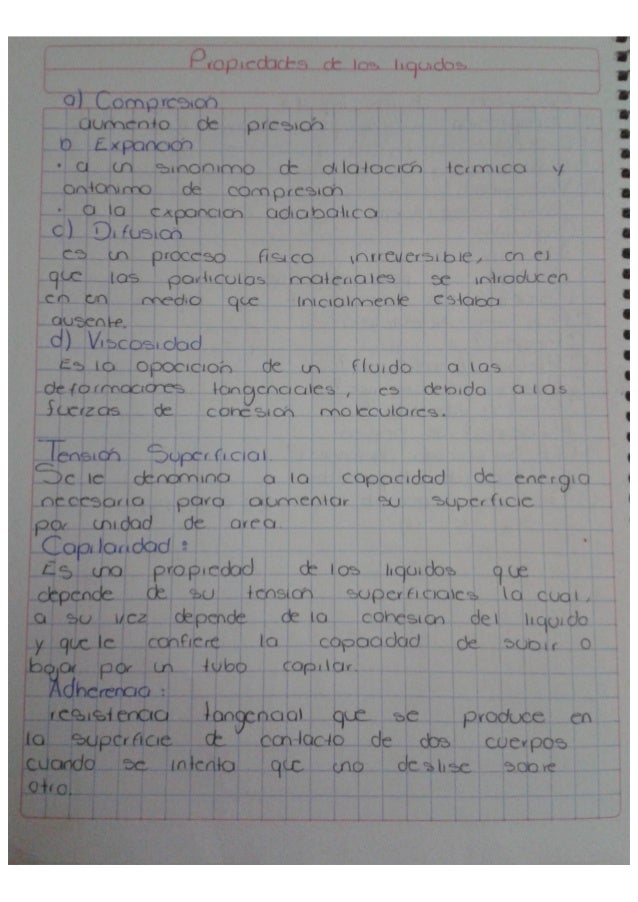 Propiedades de los liquidos
a) Compresión
aumento de presión
b Expanción
• a un sinonimo de dilatación termica y
antonimo de compresión
• a la expancion adiabatica
c) Difusión
es un proceso fisico inrreversible, en el
que las particulas materiales se introducen
en en medio que inicialmente estaba
ausente.
d) Viscosidad
Es la oposición de un fluido a las
deformaciones tangenciales, es debida a las
fuerzas de cohesión moleculares.
Tensión Superficial
Se le denomina a la capacidad de energia
necesaria para aumentar su superficie
por unidad de area.
Capilaridad:
Es una propiedad de los liquidos que
depende de su tension superficiales la cual,
a su vez depende de la cohesion del liquido
y que le confiere la capacidad de subir o
bajar por un tubo capilar.
Adherencia:
resistencia tangencial que se produce en
la superficie de contacto de dos cuerpos
cuando se intenta que uno deslise sobre
otro.